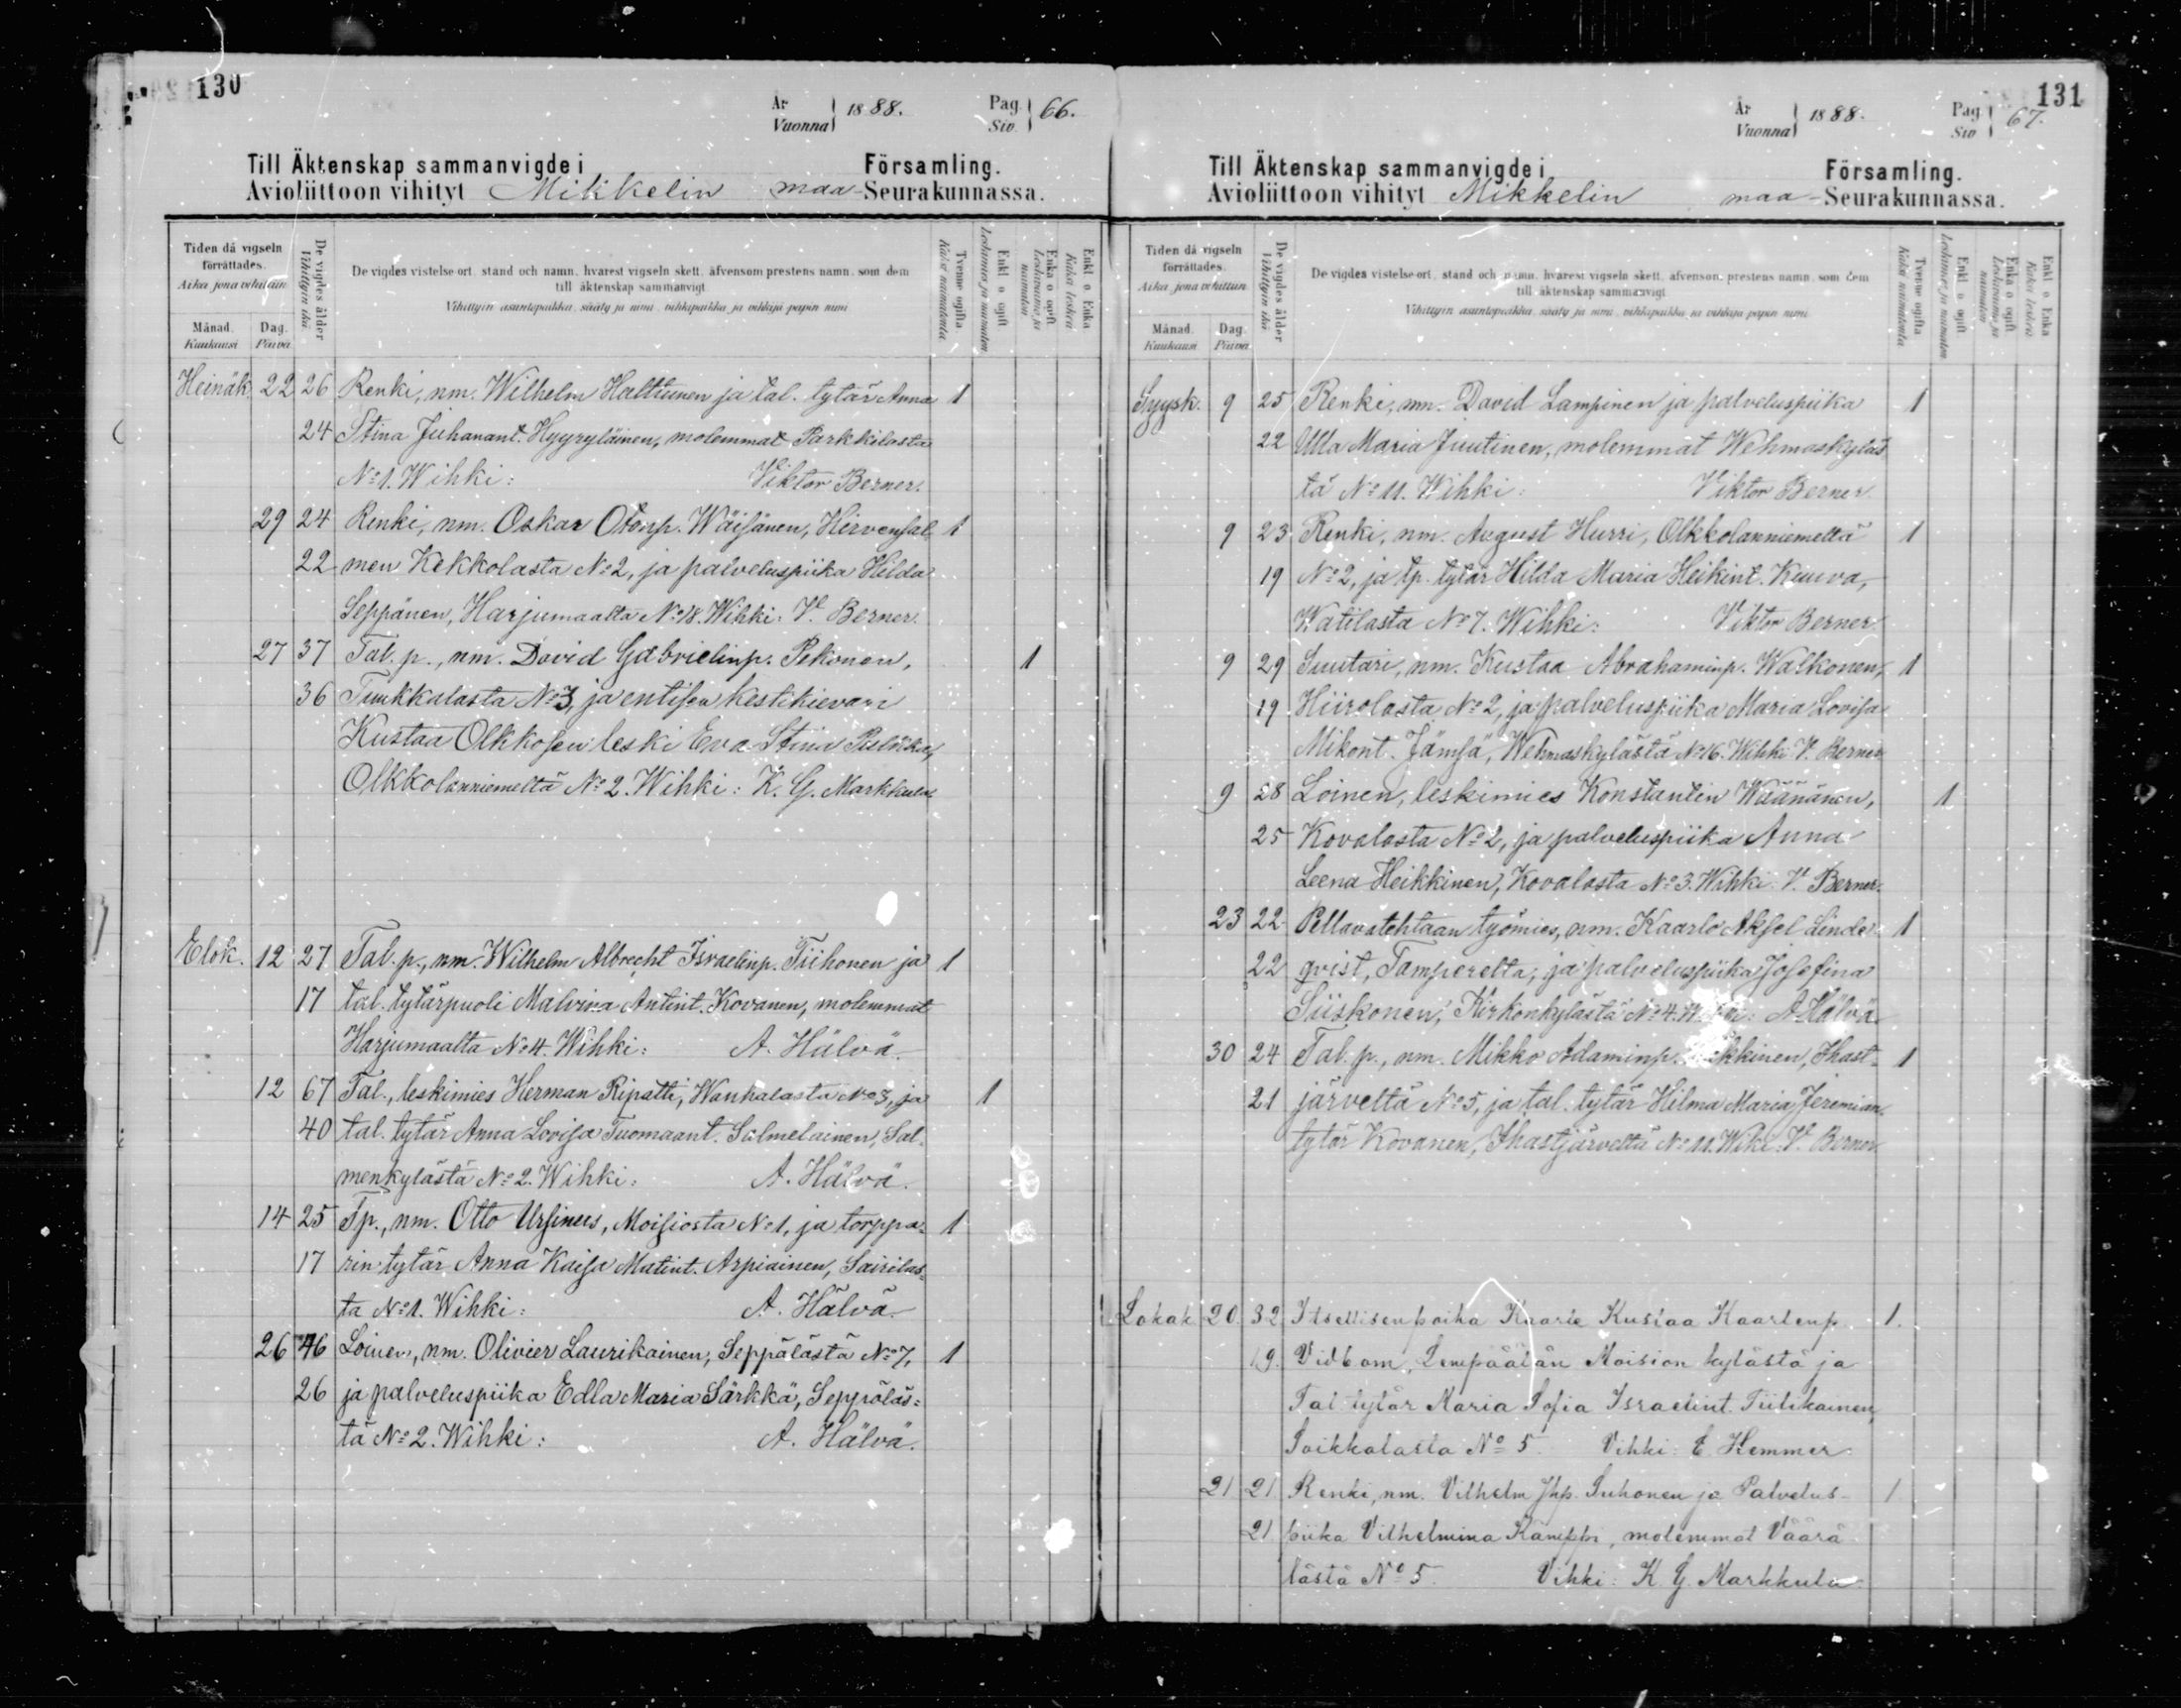 130
År
Vuonna } 1888.
Pag.
Siv. } 66.
Till Äktenskap sammanvigde i Församling.
Avioliittoon vihityt Mikkelin maa-Seurakunnassa.
Tiden då vigseln förrättades.
Aika jona vihittiin
Månad.
Kuukausi
Dag.
Päivä
De vigdes ålder
Vihittyin ikä
De vigdes vistelse ort, stånd och namn, hvarest vigseln skett, äfvensom prestens namn, som dem
till äktenskap sammanvigt.
Vihittyin asuntopaikka, sääty ja nimi, vihkipaikka ja vihkijä papin nimi
Tvenne ogifta
Kaksi naimatonta
Enkl. o. ogift
Leskimies ja naimaton
Enka o. ogift
Leskivaimo ja naimaton
Enkl. o. Enka
Kaksi leskeä
Heinäk. 22 26 Renki, nm. Wilhelm Halttunen ja tal. tytär Anna 1
24 Stina Juhanant. Hyyryläinen, molemmat Parkkilasta
No 1. Wihki: Viktor Berner.
29 24 Renki, nm. Oskar Otonp. Wäisänen, Hirvensal- 1
22 men Kekkolasta No 2, ja palveluspiika Hilda
Seppänen, Harjumaalta No 18. Wihki: V. Berner.
27 37 Tal. p., nm. David Gabrielinp. Pekonen, 1
36 Tuukkalasta No 3, ja entisen kestikievari
Kustaa Olkkosen leski Eva Stina
Olkkolanniemeltä No 2. Wihki: K. G. Markkula.
Elok. 12 27 Tal. p., nm. Wilhelm Albrecht Israelinp. Tiihonen ja 1
17 tal. tytärpuoli Malvina Antint. Kovanen, molemmat
Harjumaalta No 4. Wihki: A. Hälvä.
12 67 Tal., leskimies Herman Ripatti, Wanhalasta No 3, ja 1
40 tal. tytär Anna Lovisa Tuomaant. Salmelainen, Sal-
menkylästä No 2. Wihki: A. Hälvä.
14 25 Tp., nm. Otto Ursinus, Moisiosta No 1, ja torppa- 1
17 rin tytär Anna Kaisa Matint. Arpiainen, Sairilas-
ta No 1. Wihki: A. Hälvä.
26 46 Loinen, nm. Olivier Laurikainen, Seppälästä No 7, 1
26 ja palveluspiika Edla Maria Särkkä, Seppäläs-
tä No 2. Wihki: A. Hälvä.
131
År
Vuonna } 1888.
Pag.
Siv } 67.
Till Äktenskap sammanvigde i Församling.
Avioliittoon vihityt Mikkelin maa-Seurakunnassa.
Tiden då vigseln förrättades.
Aika jona vihittiin
Månad.
Kuukausi
Dag.
Päivä
De vigdes ålder
Vihittyin ikä
De vigdes vistelse ort, stånd och namn, hvarest vigseln skett, äfvensom prestens namn, som dem
till äktenskap sammanvigt.
Vihittyin asuntopaikka, sääty ja nimi, vihkipaikka ja vihkijä papin nimi
Tvenne ogifta
Kaksi naimatonta
Enkl. o. ogift
Leskimies ja naimaton
Enka o. ogift
Leskivaimo ja naimaton
Enkl. o. Enka
Kaksi leskeä
Syysk. 9 25 Renki, nm. David Lampinen ja palveluspiika 1
22 Ulla Maria Juutinen, molemmat Wehmaskyläs
tä No 11. Wihki: Viktor Berner
9 23 Renki, nm. August Hurri, Olkkolanniemeltä 1
19 No 2, ja tp. tytär Hilda Maria Heikint. Kuuva,
Watilasta No 7. Wihki: Viktor Berner
9 29 Suutari, nm. Kustaa Abrahaminp. Walkonen, 1
19 Hiirolasta No 2, ja palveluspiika Maria Lovisa
Mikont. Jämsä, Wehmaskylästä No 16. Wihki V. Berner
9 28 Loinen, leskimies Konstantin Wäänänen, 1
25 Kovalasta No 2, ja palveluspiika Anna
Leena Heikkinen, Kovalasta No 3. Wihki: V. Berner.
23 22 Pellavatehtaan työmies, nm. Kaarlo Aksel Linde- 1
22 qvist, Tampereelta, ja palveluspiika Josefina
Siiskonen, Kirkonkylästä No 4. A. Hälvä.
30 24 Tal. p., nm. Mikko Adaminp. Ihast- 1
21 järveltä No 5, ja tal. tytär Hilma Maria Jeremian-
tytär Kovanen, Ihastjärveltä No 11. Wihki: V. Berner
Lokak. 20. 32 Itsellisenpoika Kaarle Kustaa Kaarlenp. 1.
19. Vidbom, Lempäälän Moision kylästä ja
Tal. tytär Maria Sofia Israelint. Tiilikainen,
Soikkalasta No 5. Vihki: E. Hemmer.
21 21 Renki, nm. Vilhelm Jhp. Suhonen ja Palvelus- 1
21 piika Vilhelmina Kämppi, molemmat Väärä
lästä No 5. Vihki: K G Markkula